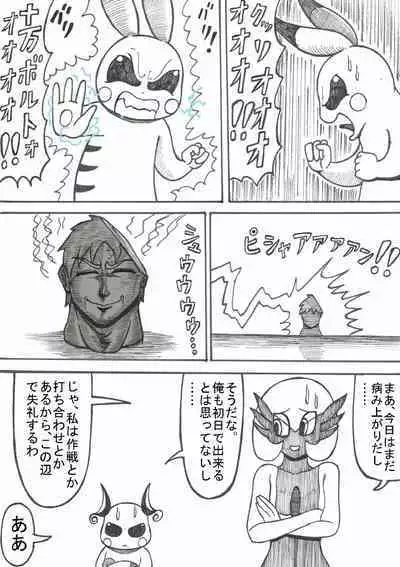 クッ
リオオオオ
オオオオ!!
十万ボルトォ
オオオオ
オオオ!!
ピシャアアアアン!!
シュウウウウ…
まあ、今日はまだ
病み上がりだし
……
そうだな。
俺も初日で出来る
とは思ってないし
……
じゃ、私は作戦とか
打ち合わせとか
あるから、この辺
で失礼するわ
ああ